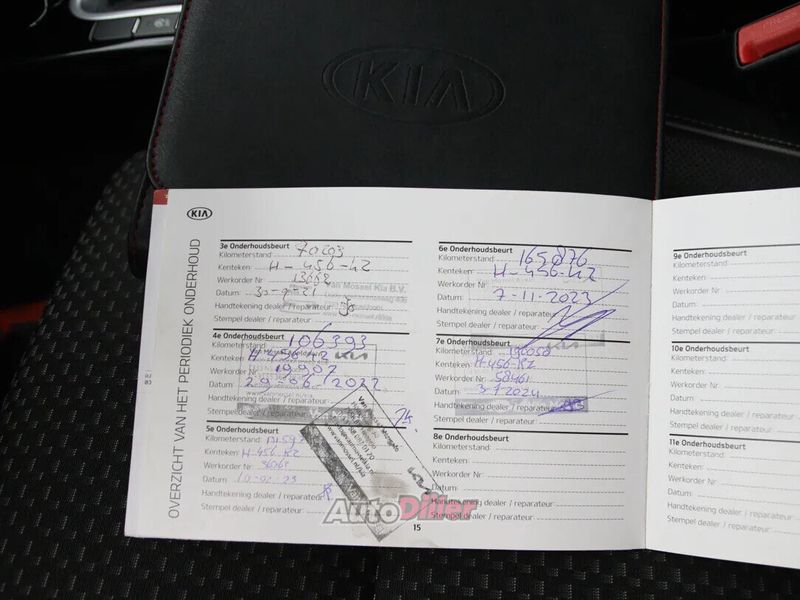 KIA
KIA
OVERZICHT VAN HET PERIODIEK ONDERHOUD
3e Onderhoudsbeurt
Kilometerstand 70203
Kenteken H-456-KZ
Werkorder Nr 13662
Van Mossel Kia B.V.
Datum
Handtekening dealer / reparateur
Stempel dealer / reparateur
4e Onderhoudsbeurt
Kilometerstand 106393
Kenteken H-456-KZ
Werkorder Nr 19907
Datum 29-06-2022
Handtekening dealer / reparateur
Stempel dealer / reparateur
5e Onderhoudsbeurt
Kilometerstand
Kenteken H-456-KZ
Werkorder Nr
Datum
Handtekening dealer / reparateur
Stempel dealer / reparateur
6e Onderhoudsbeurt
Kilometerstand 165876
Kenteken H-456-KZ
Werkorder Nr
Datum 7-11-2023
Handtekening dealer / reparateur
Stempel dealer / reparateur
7e Onderhoudsbeurt
Kilometerstand
Kenteken H-456-KZ
Werkorder Nr 58461
Datum
Handtekening dealer / reparateur
Stempel dealer / reparateur
8e Onderhoudsbeurt
Kilometerstand
Kenteken
Werkorder Nr
Datum
Handtekening dealer / reparateur
Stempel dealer / reparateur
15
9e Onderhoudsbeurt
Kilometerstand
Kenteken
Werkorder Nr
Datum
Handtekening dealer
Stempel dealer / reparateur
10e Onderhoudsbeurt
Kilometerstand
Kenteken
Werkorder Nr
Datum
Handtekening dealer
Stempel dealer / reparateur
11e Onderhoudsbeurt
Kilometerstand
Kenteken
Werkorder Nr
Datum
Handtekening dealer
Stempel dealer / reparateur
AutoDiller